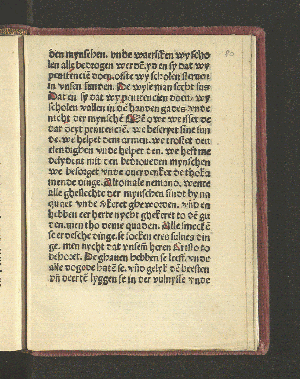 den mynschen. vnde waerliken wy scho
len alle bedrogen werdē. yd en sy dat wy
penitencië doen. ofte wy scholen steruen
in vnsen sunden. De wyse man secht sus
Dat en sy dat wy penitencien doen. wy
scholen vallen in de handen gades. vnde
nicht der mynschē
dar deyt penitencië. we bescryet sine sun
de. we helpet dem armen. we trostet den
elendighen vnde helpet en. we heft me
delydent mit den bedroueden mynschen
we besorget vnde ouerdenket de thoko
mende dinge. Altomale nemand. wente
alle gheslechte der mynschen sint by na
quaet vnde vorkeret ghe worden. vnd en
hebben er herte nycht ghekeret to dē gu
den. men tho deme quaden. Alle
se er eghene dinge. se soken eres sulues din
ge. men nycht dat vnsem heren Cristo to
behoret. De ghauen hebben se leeff. vnde
alle dogede haten se. vnd gelyk dē beesten
vnd deerē lyggen se in der vulnysse vnde